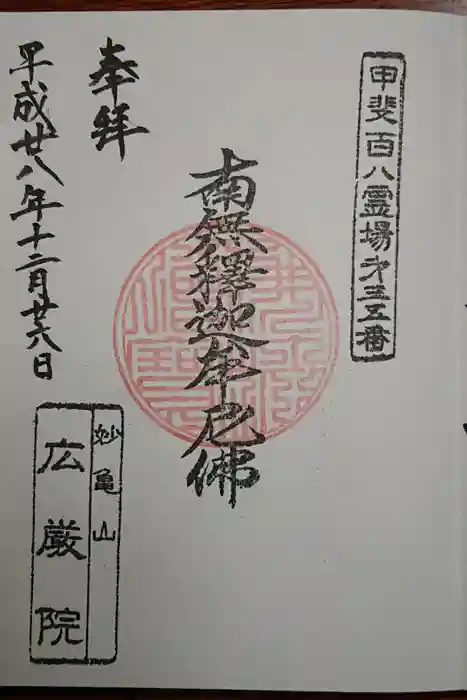 甲斐百八霊場㐧三五番
奉拝
南無釋迦牟尼佛
平成廿八年十二月廿六日
妙亀山
広厳院